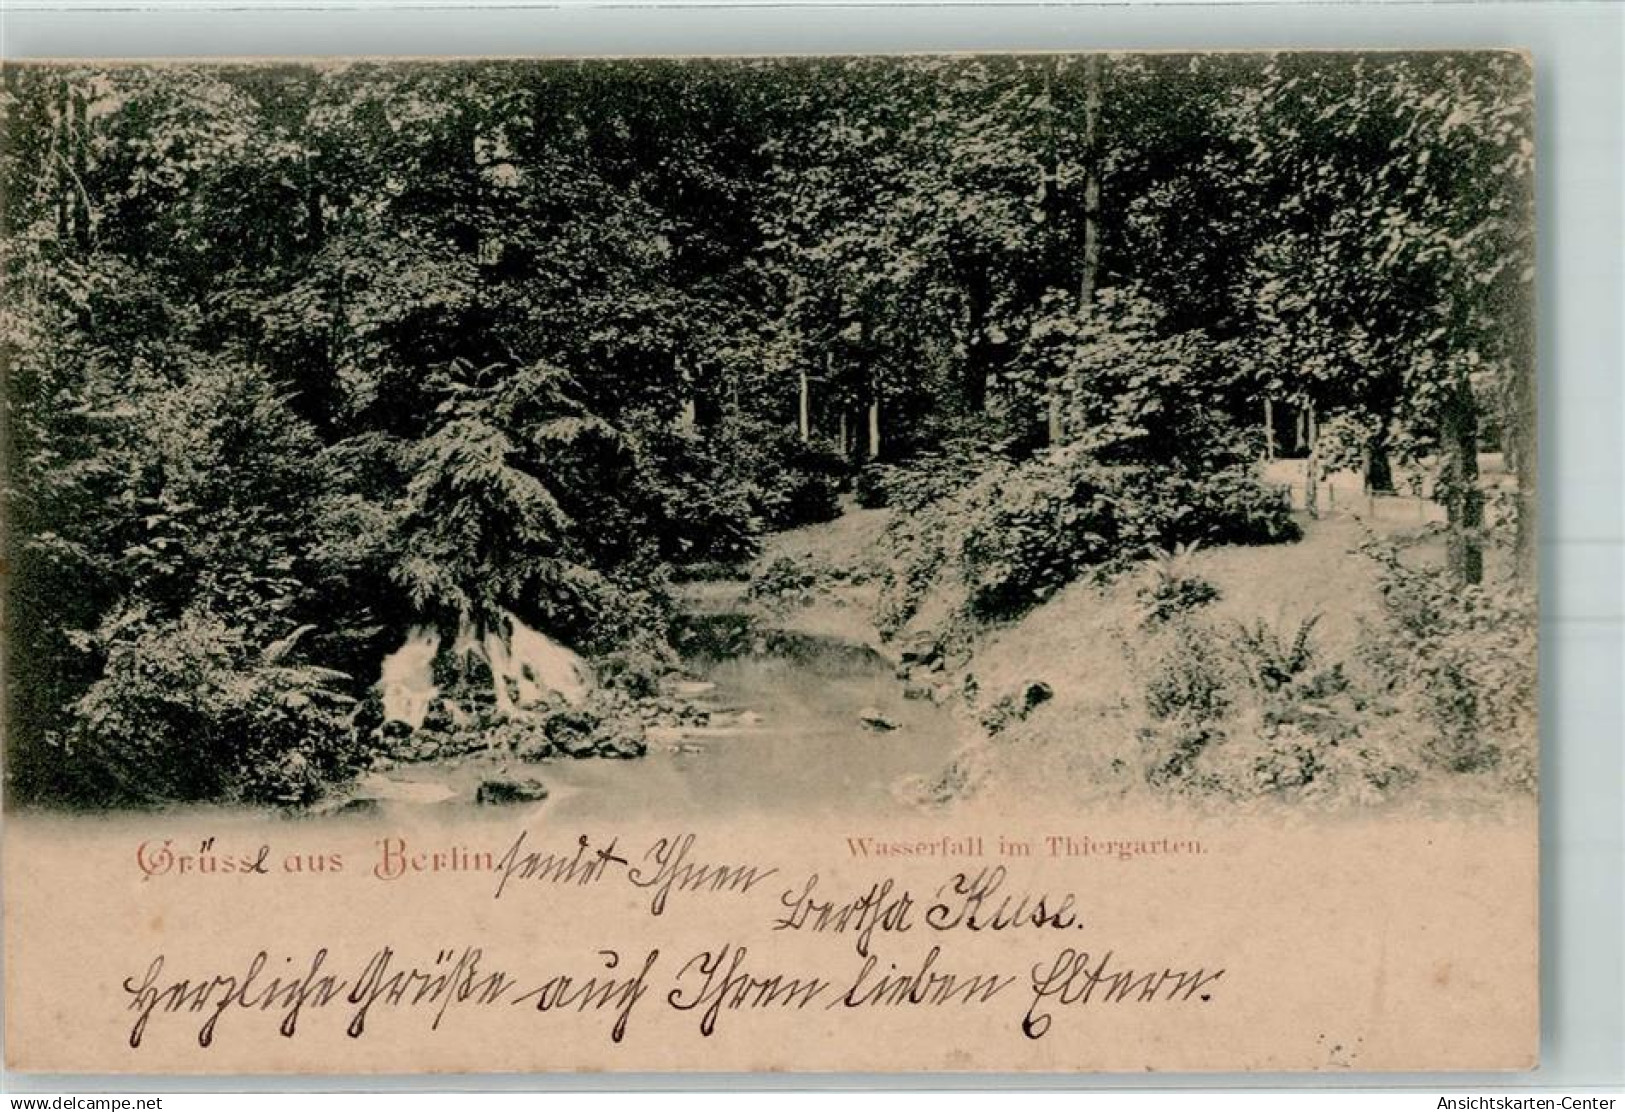 Grüsse aus Berlin sendet Ihnen
Wasserfall im Thiergarten.
Bertha Kuse.
Herzliche Grüße auch Ihren lieben Eltern.
www.delcampe.net
Ansichtskarten-Center